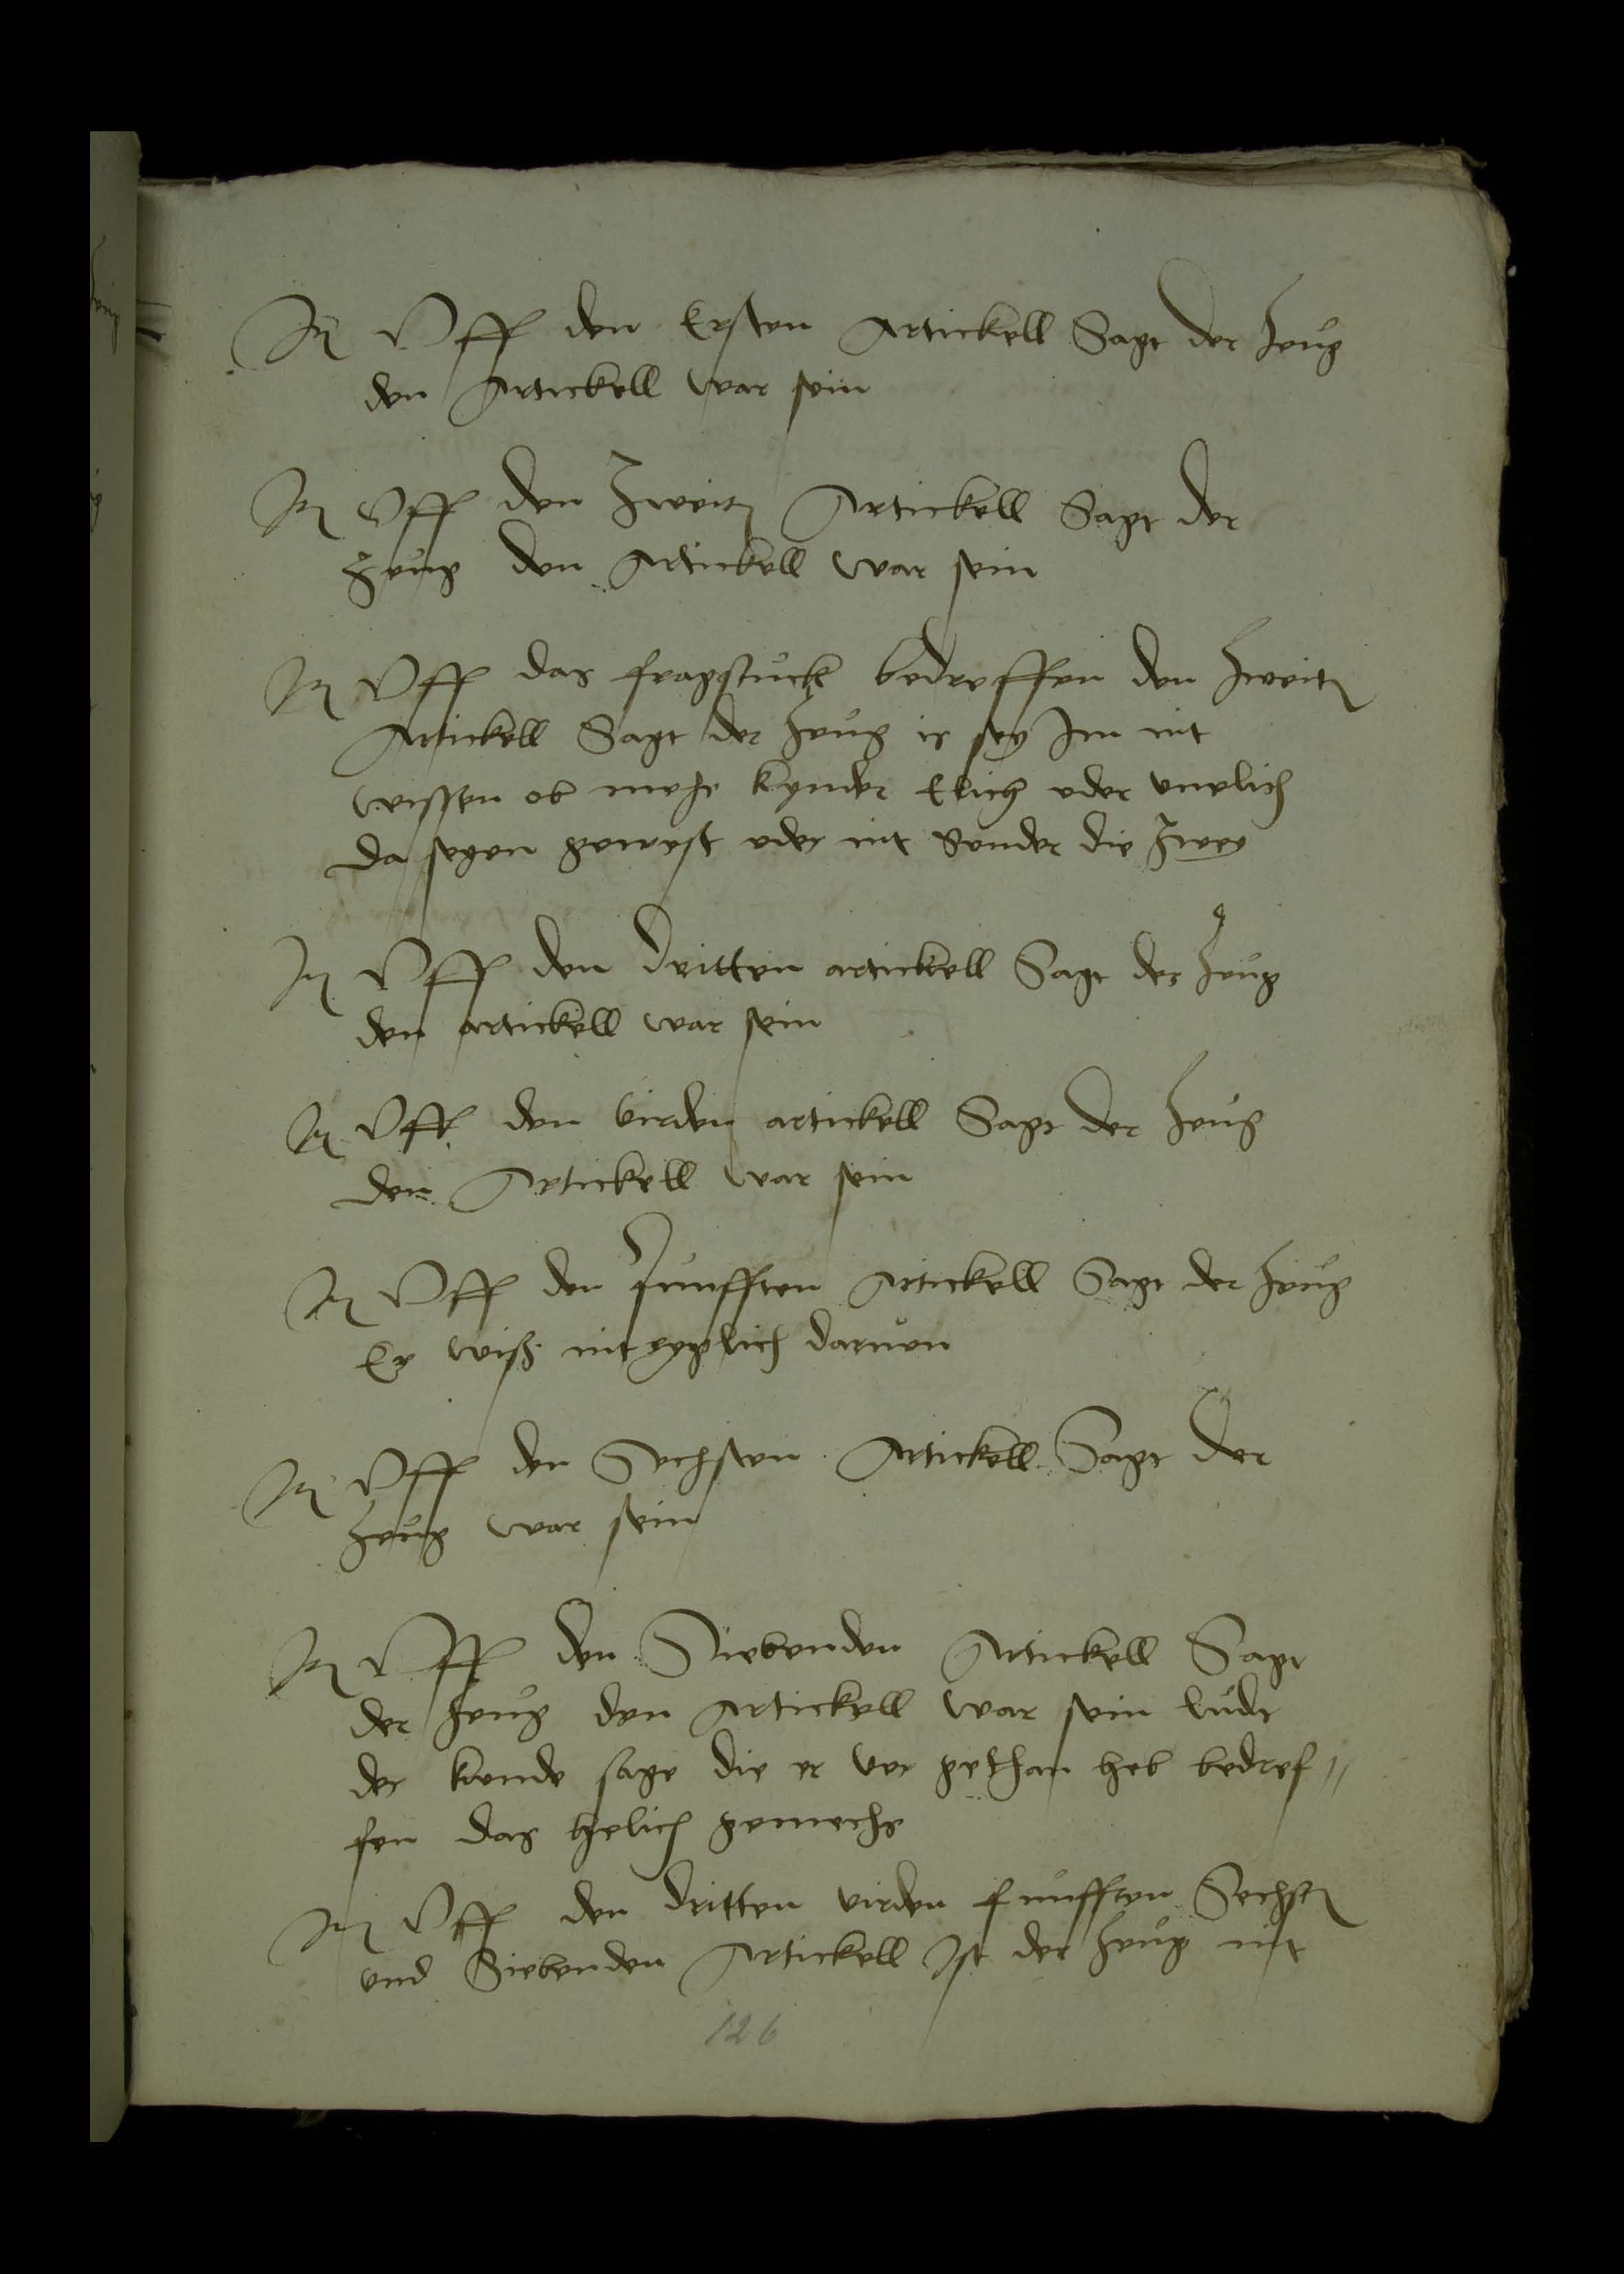 It Uff den Ersten Artickell Sagt der Zeug
den Artickell war sein
It Uff den Zweit Artickell Sagt der
Zeug den Artickell war sein
It Uff das fragstuck bedreffen den Zweit
Artickell Sagt der Zeug is sey Im nit
wissen ob mehe kynder Elich oder unelich
da seyen gewest oder nit Sonder die Zwey
It Uff den dritten artickell Sagt der Zeug
den artickell war sein
It Uff den virden artickell Sagt der Zeug
den Artickell war sein
It Uff den funfften Artickell Sagt der Zeug
Er wiß nit eyglich daruon
It Uff den Sechsten Artickell Sagt der
Zeug war sein
It Uff den Siebenden Artickell Sagt
der Zeug den Artickell war sein lude
der konde sage die er vor gethan heb bedref //
fen das helich gemechs
It Uff den dritten virden funfften Sechst
vnd Siebenden Artickell Ist der Zeug nit
126